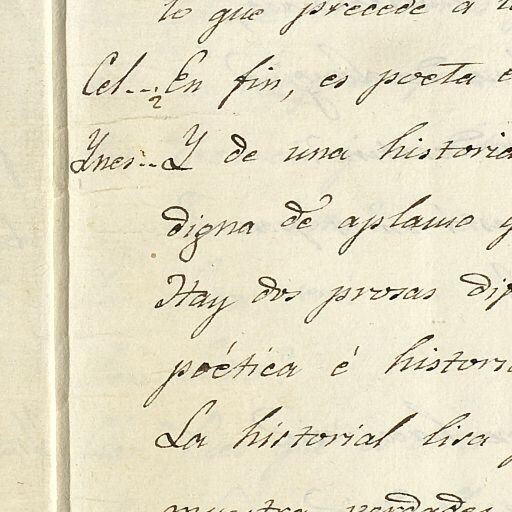 lo que precede a
Cel...¿En fin, es poeta e
Ynes...Y de una historia
digna de aplauso y
Hay dos prosas dif
poética é histori
La historial lisa y
muestra verdades